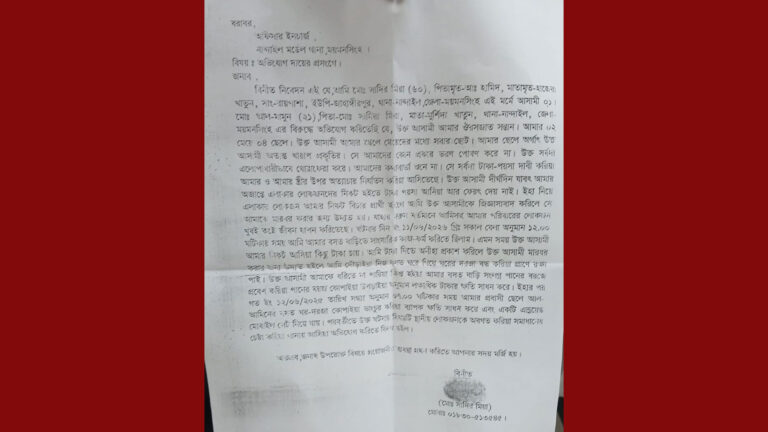 বরাবর,
অফিসার ইনচার্জ,
নান্দাইল মডেল থানা, ময়মনসিংহ ।
বিষয় ঃ অভিযোগ দায়ের প্রসংগে।
জনাব,
বিনীত নিবেদন এই যে, আমি মোঃ সাদির মিয়া (৬০), পিতামৃত-আঃ হামিদ, মাতামৃত-
খাতুন, সাং-রায়পাশা, ইউপি-জাহাঙ্গীরপুর, থানা-নান্দাইল, জেলা-ময়মনসিংহ এই মর্মে আসামী ০১।
মোঃ আল-মামুন (২১), পিতা-মোঃ সাদির মিয়া, মাতা-মুর্শিদা খাতুন, থানা-নান্দাইল, জেলা-
ময়মনসিংহ এর বিরুদ্ধে অভিযোগ করিতেছি যে, উক্ত আসামী আমার ঔরসজাত সন্তান। আমার ০২
মেয়ে ০৪ ছেলে। উক্ত আসামী আমার ছেলে মেয়েদের মধ্যে সবার ছোট। আমার ছেলে অর্থাৎ উক্ত
আসামী অত্যন্ত খারাপ প্রকৃতির। সে আমাদের কোন প্রকার ভরণ পোষণ করে না। উক্ত সর্বদা
এলোপাথারীভাবে ঘোরাফেরা করে। আমাদের কথাবার্তা শুনে না। সে সর্বদা টাকা-পয়সা দাবী করিয়া
আমার ও আমার স্ত্রীর উপর অত্যাচার নির্যাতন করিয়া আসিতেছে। উক্ত আসামী দীর্ঘদিন যাবৎ আমার
অজান্তে এলাকার লোকজনদের নিকট হইতে টাকা পয়সা আনিয়া আর ফেরৎ দেয় নাই। ইহা নিয়ে
এলাকার লোকজন আমার নিকট বিচার প্রার্থী হইলে আমি উক্ত আসামীকে জিজ্ঞাসাবাদ করিলে সে
আমাকে মারধর করার জন্য উদ্যত হয়। যাহার কারণে বর্তমানে আমিসহ আমার পরিবারের লোকজন
খুবই কষ্টে জীবন যাপন করিতেছে। ঘটনার দিন ইং ১১/০৬/২০২৫ খ্রিঃ সকাল বেলা অনুমান ১২.০০
ঘটিকার সময় আমি আমার বসত বাড়িতে সাংসারিক কাজ-কর্ম করিতে ছিলাম। এমন সময় উক্ত আসামী
আমার নিকট আসিয়া কিছু টাকা চায়। আমি টাকা দিতে অনীহা প্রকাশ করিলে উক্ত আসামী মারধর
করার জন্য উদ্যত হইলে আমি দৌড়াইয়া নিজ বসত ঘরে গিয়ে ঘরের দরজা বন্ধ করিয়া প্রাণে রক্ষা
পাই। উক্ত আসামী আমাকে ধরিতে না পারিয়া ক্ষিপ্ত হইয়া আমার বসত বাড়ি সংলগ্ন পানের বরজে
প্রবেশ করিয়া পানের বরজ কোপাইয়া উপড়াইয়া অনুমান লক্ষাধিক টাকার ক্ষতি সাধন করে। ইহার পর
গত ইং ১২/০৬/২০২৫ তারিখ সন্ধ্যা অনুমান ০৭.০০ ঘটিকার সময় আমার প্রবাসী ছেলে আল-
আমিনের বসত ঘর-দরজা কোপাইয়া ভাংচুর করিয়া ব্যাপক ক্ষতি সাধন করে এবং একটি এন্ড্রয়েড
মোবাইল সেট নিয়ে যায়। পরবর্তীতে উক্ত ঘটনার বিষয়টি স্থানীয় লোকজনকে অবগত করিয়া সমাধানের
চেষ্টা করিয়া থানায় আসিয়া অভিযোগ করিতে বিলম্ব হইল।
অতএব, জনাব উপরোক্ত বিষয়ে প্রয়োজনীয় ব্যবস্থা গ্রহণ করিতে আপনার সদয় মর্জি হয়।
বিনীত
(মোঃ সাদির মিয়া)
মোবাঃ ০১৮৩০-৫১৩৫৪৫।